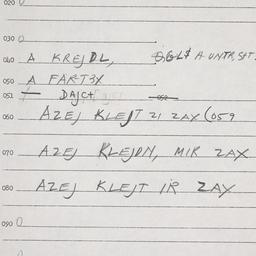 020
030
040 A KREJDL, A UNTR, SAT.
050 A FARTBX
051 DAJCH
060 AZEJ KLEJT ZI ZAX (059
070 AZEJ KLEJDN, MIR ZAX
080 AZEJ KLEJT IR ZAX
090